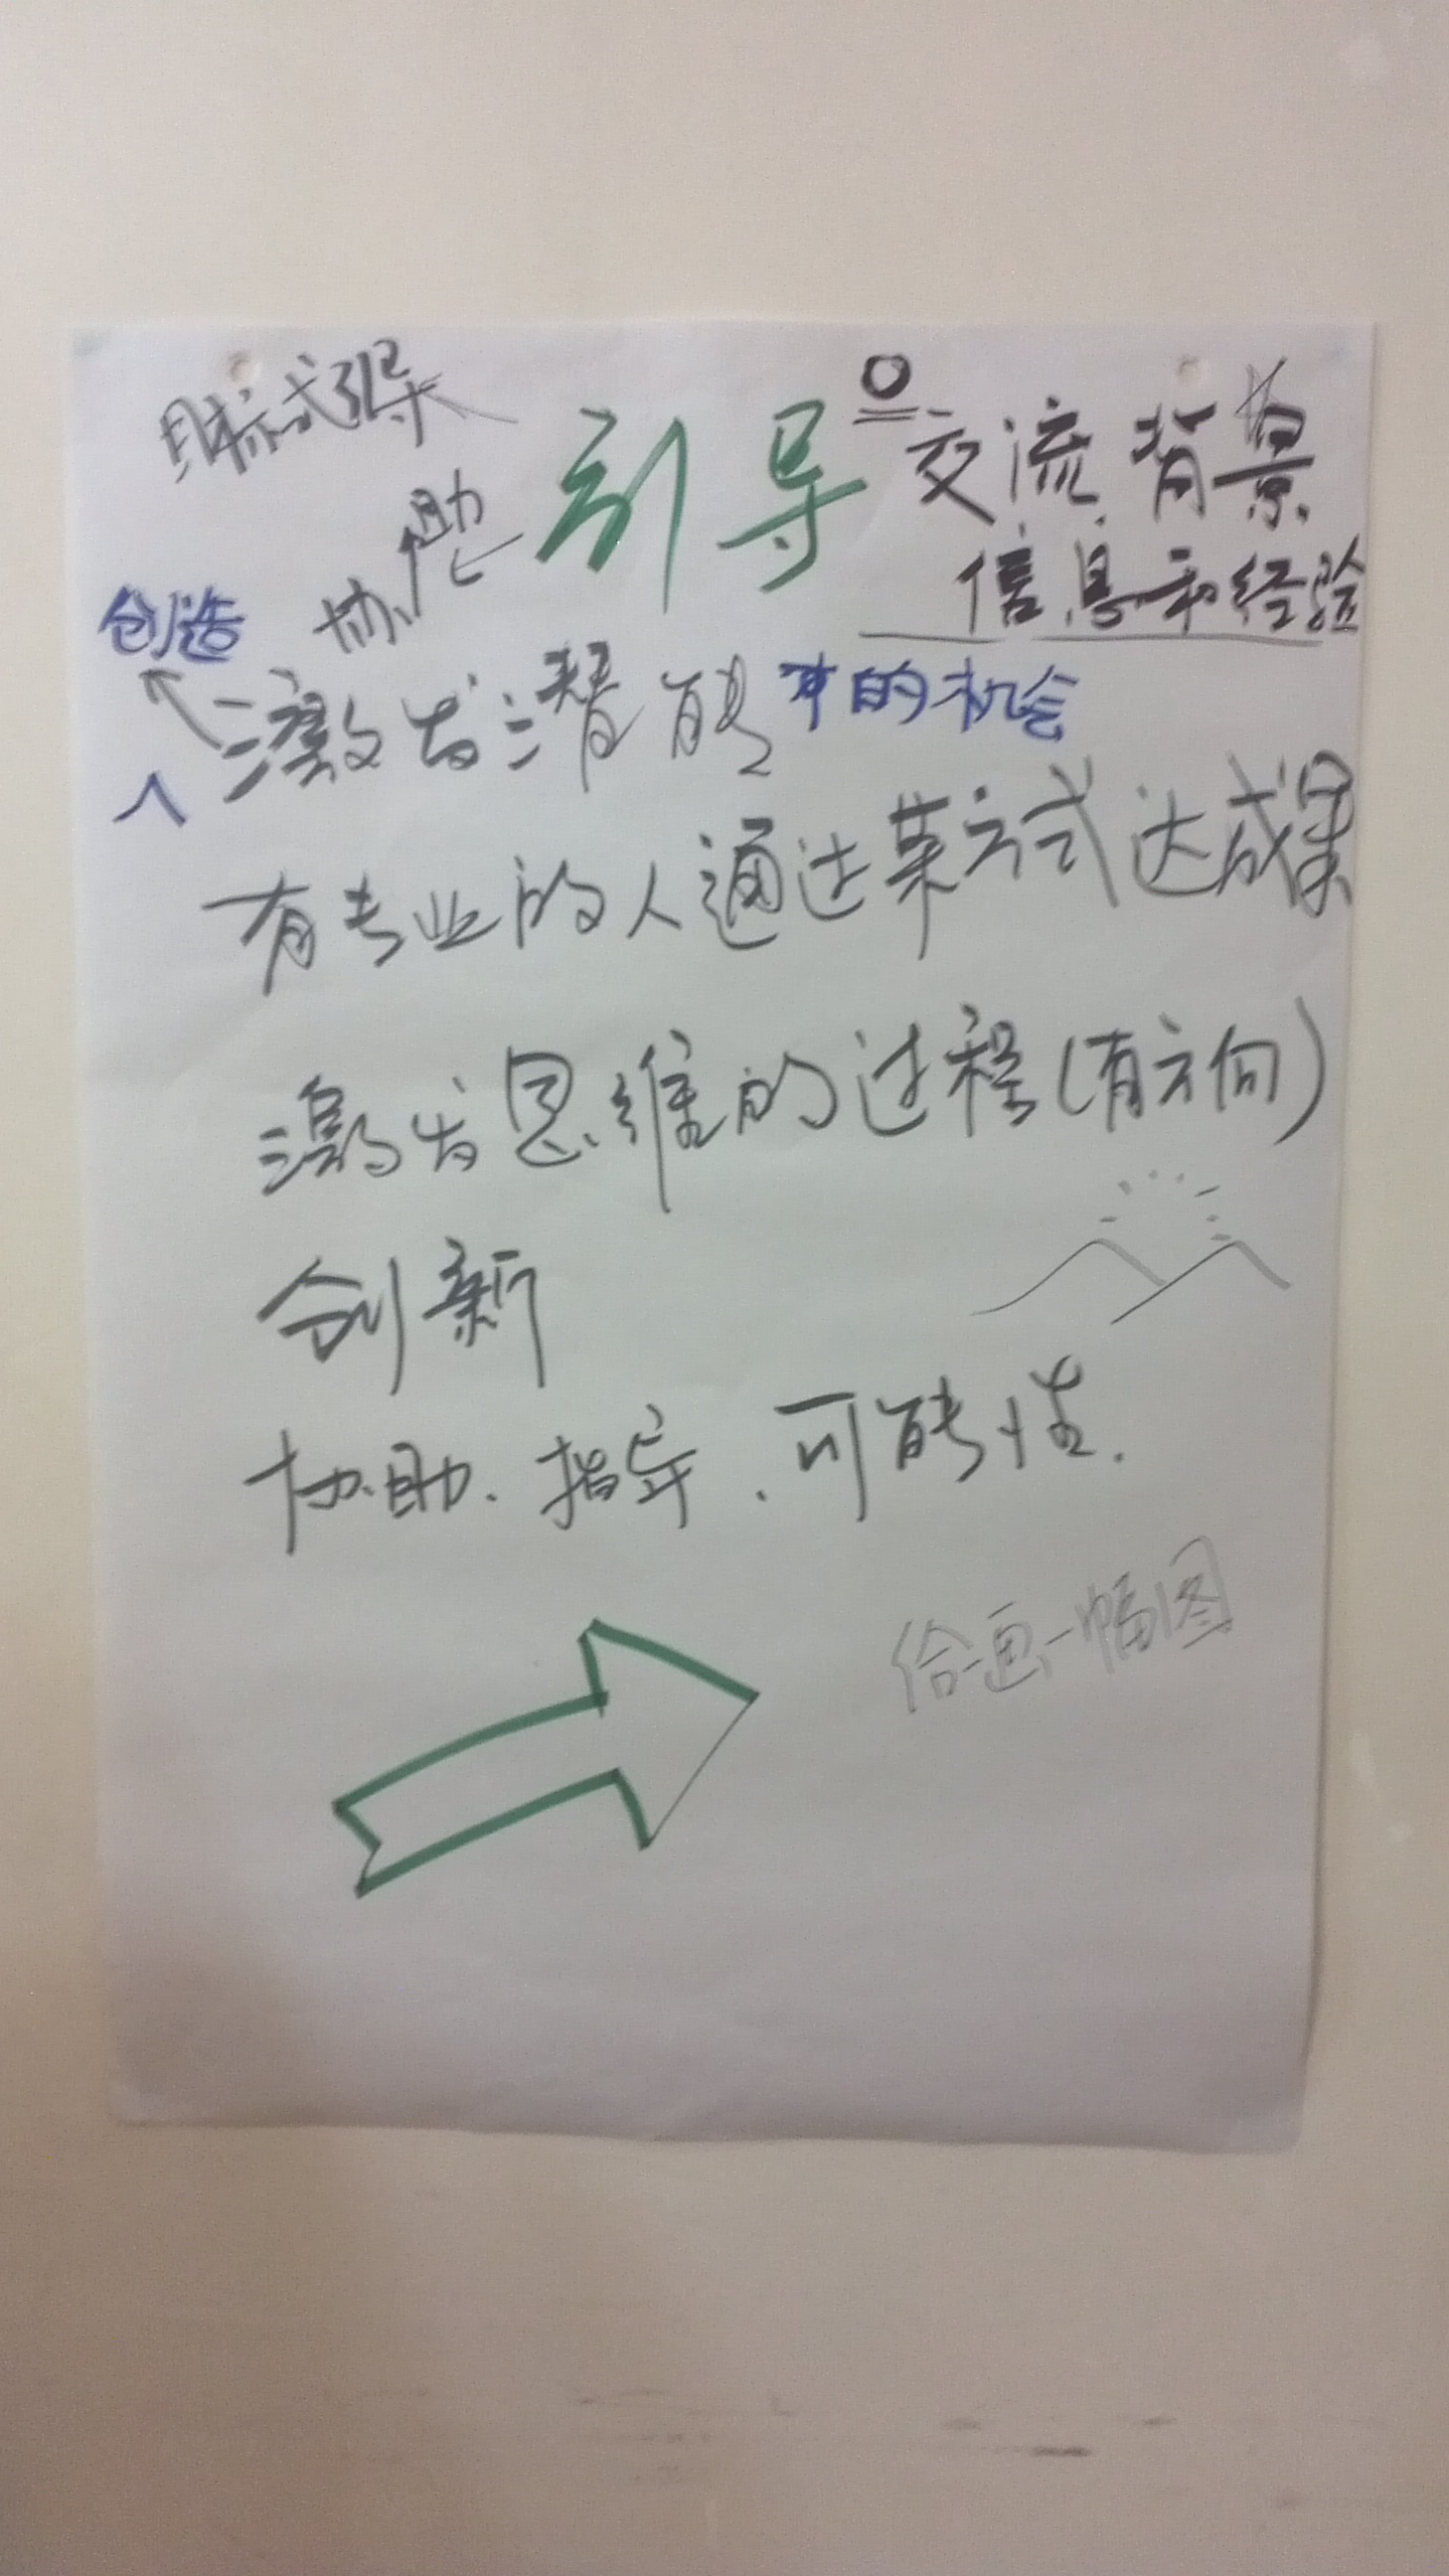 目标式引导
引导
交流背景
信息和经验
协助
创造
激发潜能 的机会
人
有专业的人通过某方式达成果
激发思维的过程(有方向)
创新
协助.指导.可能性.
给画一幅图